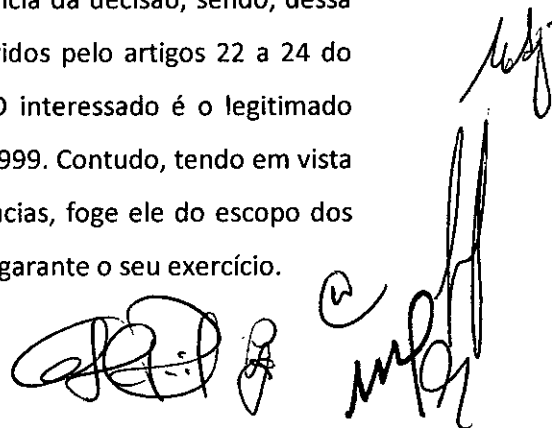 ncia da decisão, sendo, dessa
ridos pelo artigos 22 a 24 do
O interessado é o legitimado
999. Contudo, tendo em vista
ncias, foge ele do escopo dos
garante o seu exercício.